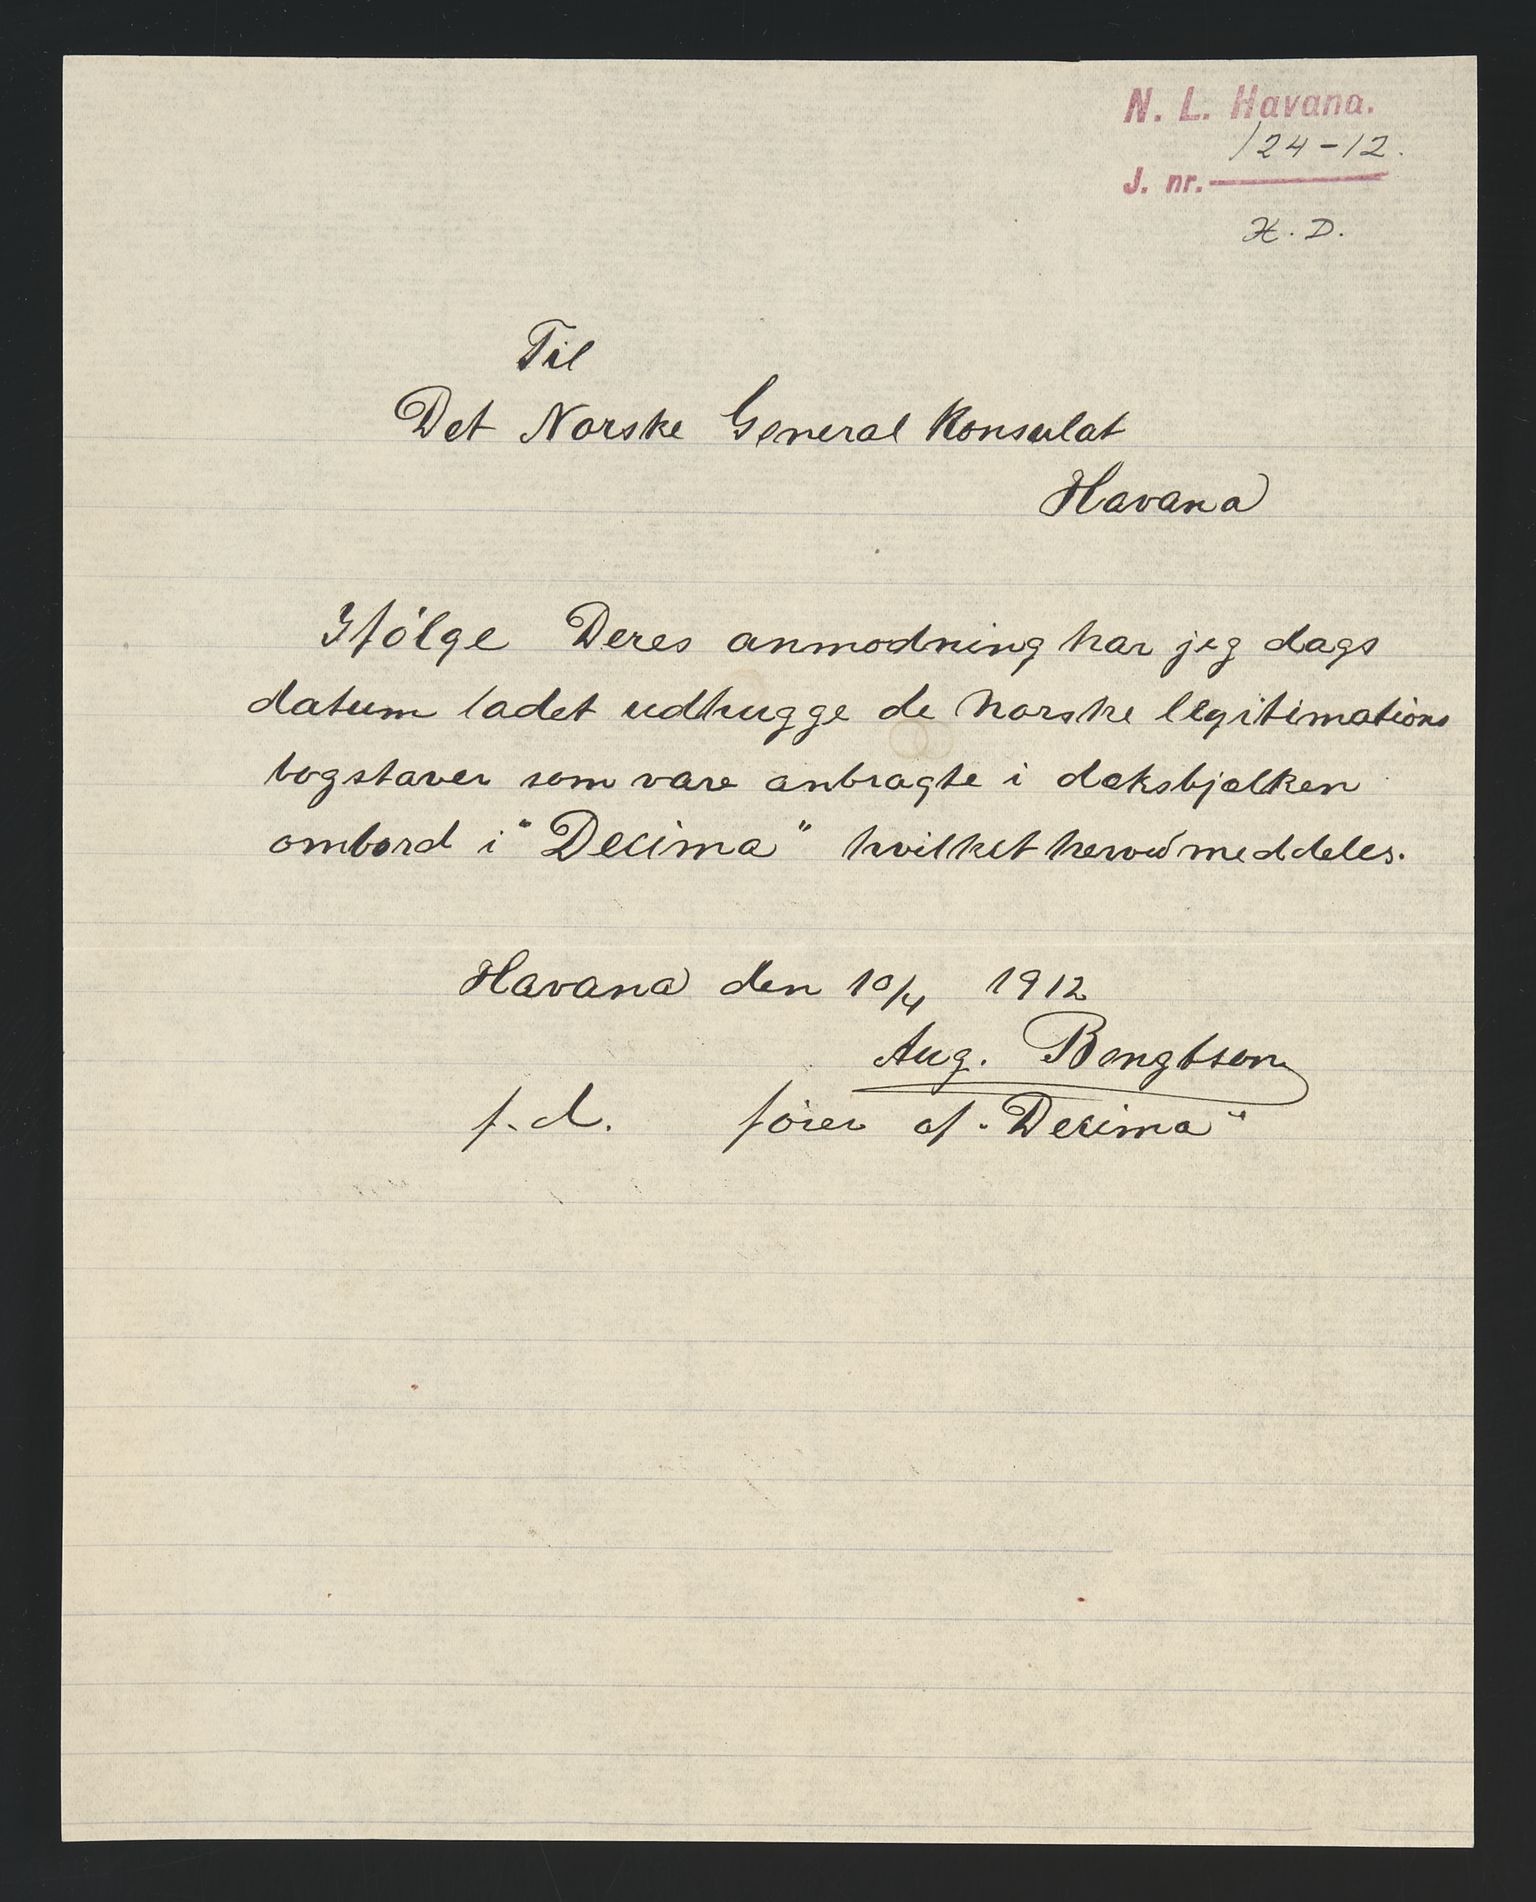 N. L. Havana.
124-12.
J. nr.
H. D.
Til
Det Norske General Konsulat
Havana
Ifölge Deres anmodning har jeg dags
datum ladet udhugge de Norske legitimations
bogstaver som vare anbragte i dæksbjælken
ombord i "Decima" hvilket herved meddeles.
Havana den 10/4 1912
Aug. Bengtson
f.d. förer af "Decima"